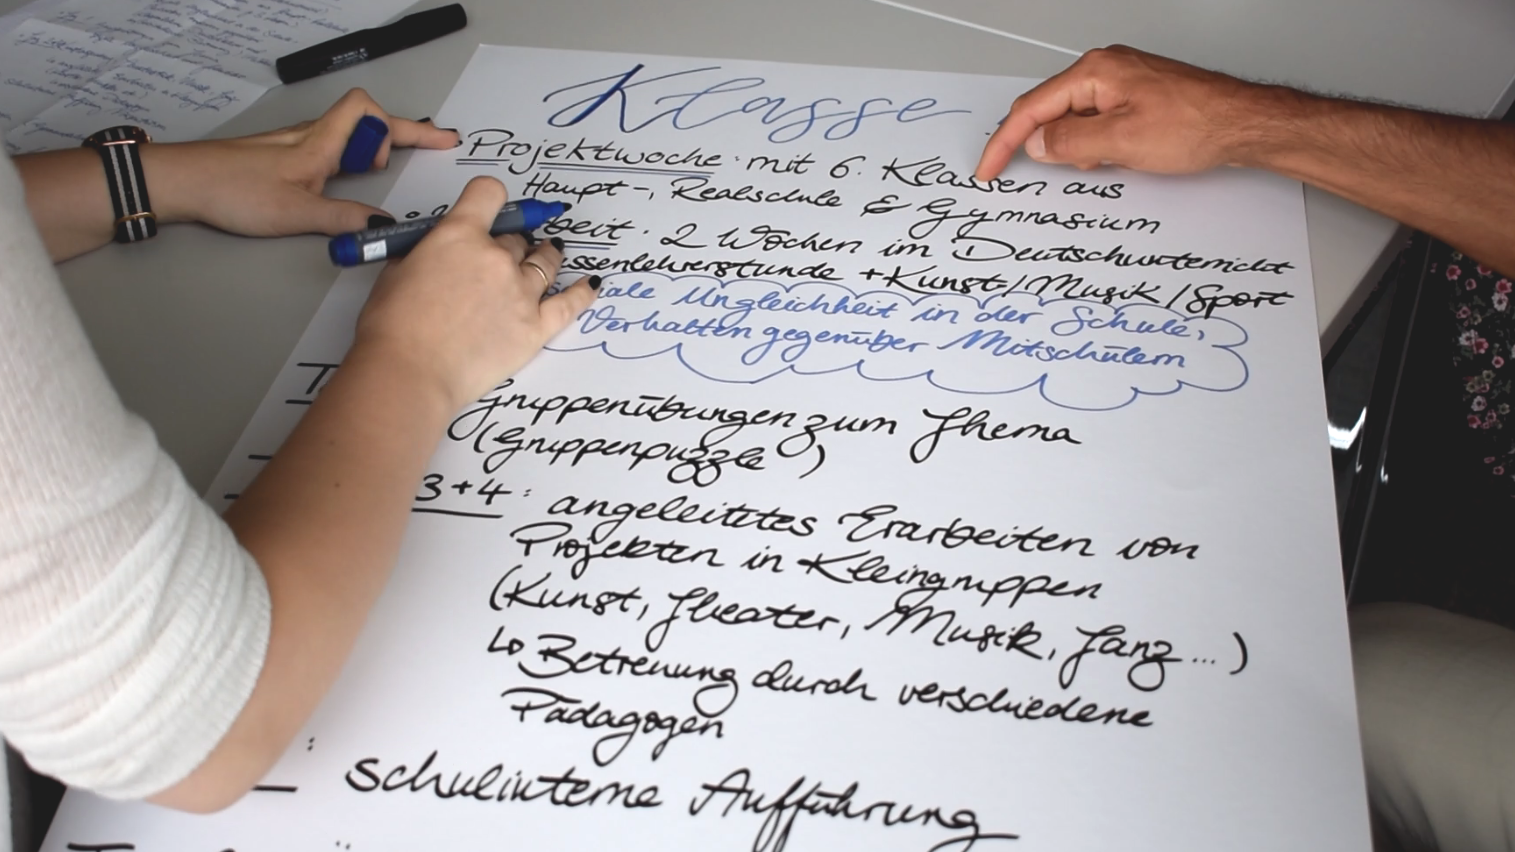 Klasse
Projektwoche: mit 6. Klassen aus
Haupt-, Realschule & Gymnasium
beit: 2 Wochen im Deutschunterricht
ssenlehrerstunde + Kunst/Musik/Sport
iale Ungleichheit in der Schule,
Verhalten gegenüber Mitschülern
Gruppenübungen zum Thema
(Gruppenpuzzle)
3+4: angeleitetes Erarbeiten von
Projekten in Kleingruppen
(Kunst, Theater, Musik, Tanz...)
↳ Betreuung durch verschiedene
Pädagogen
: schulinterne Aufführung